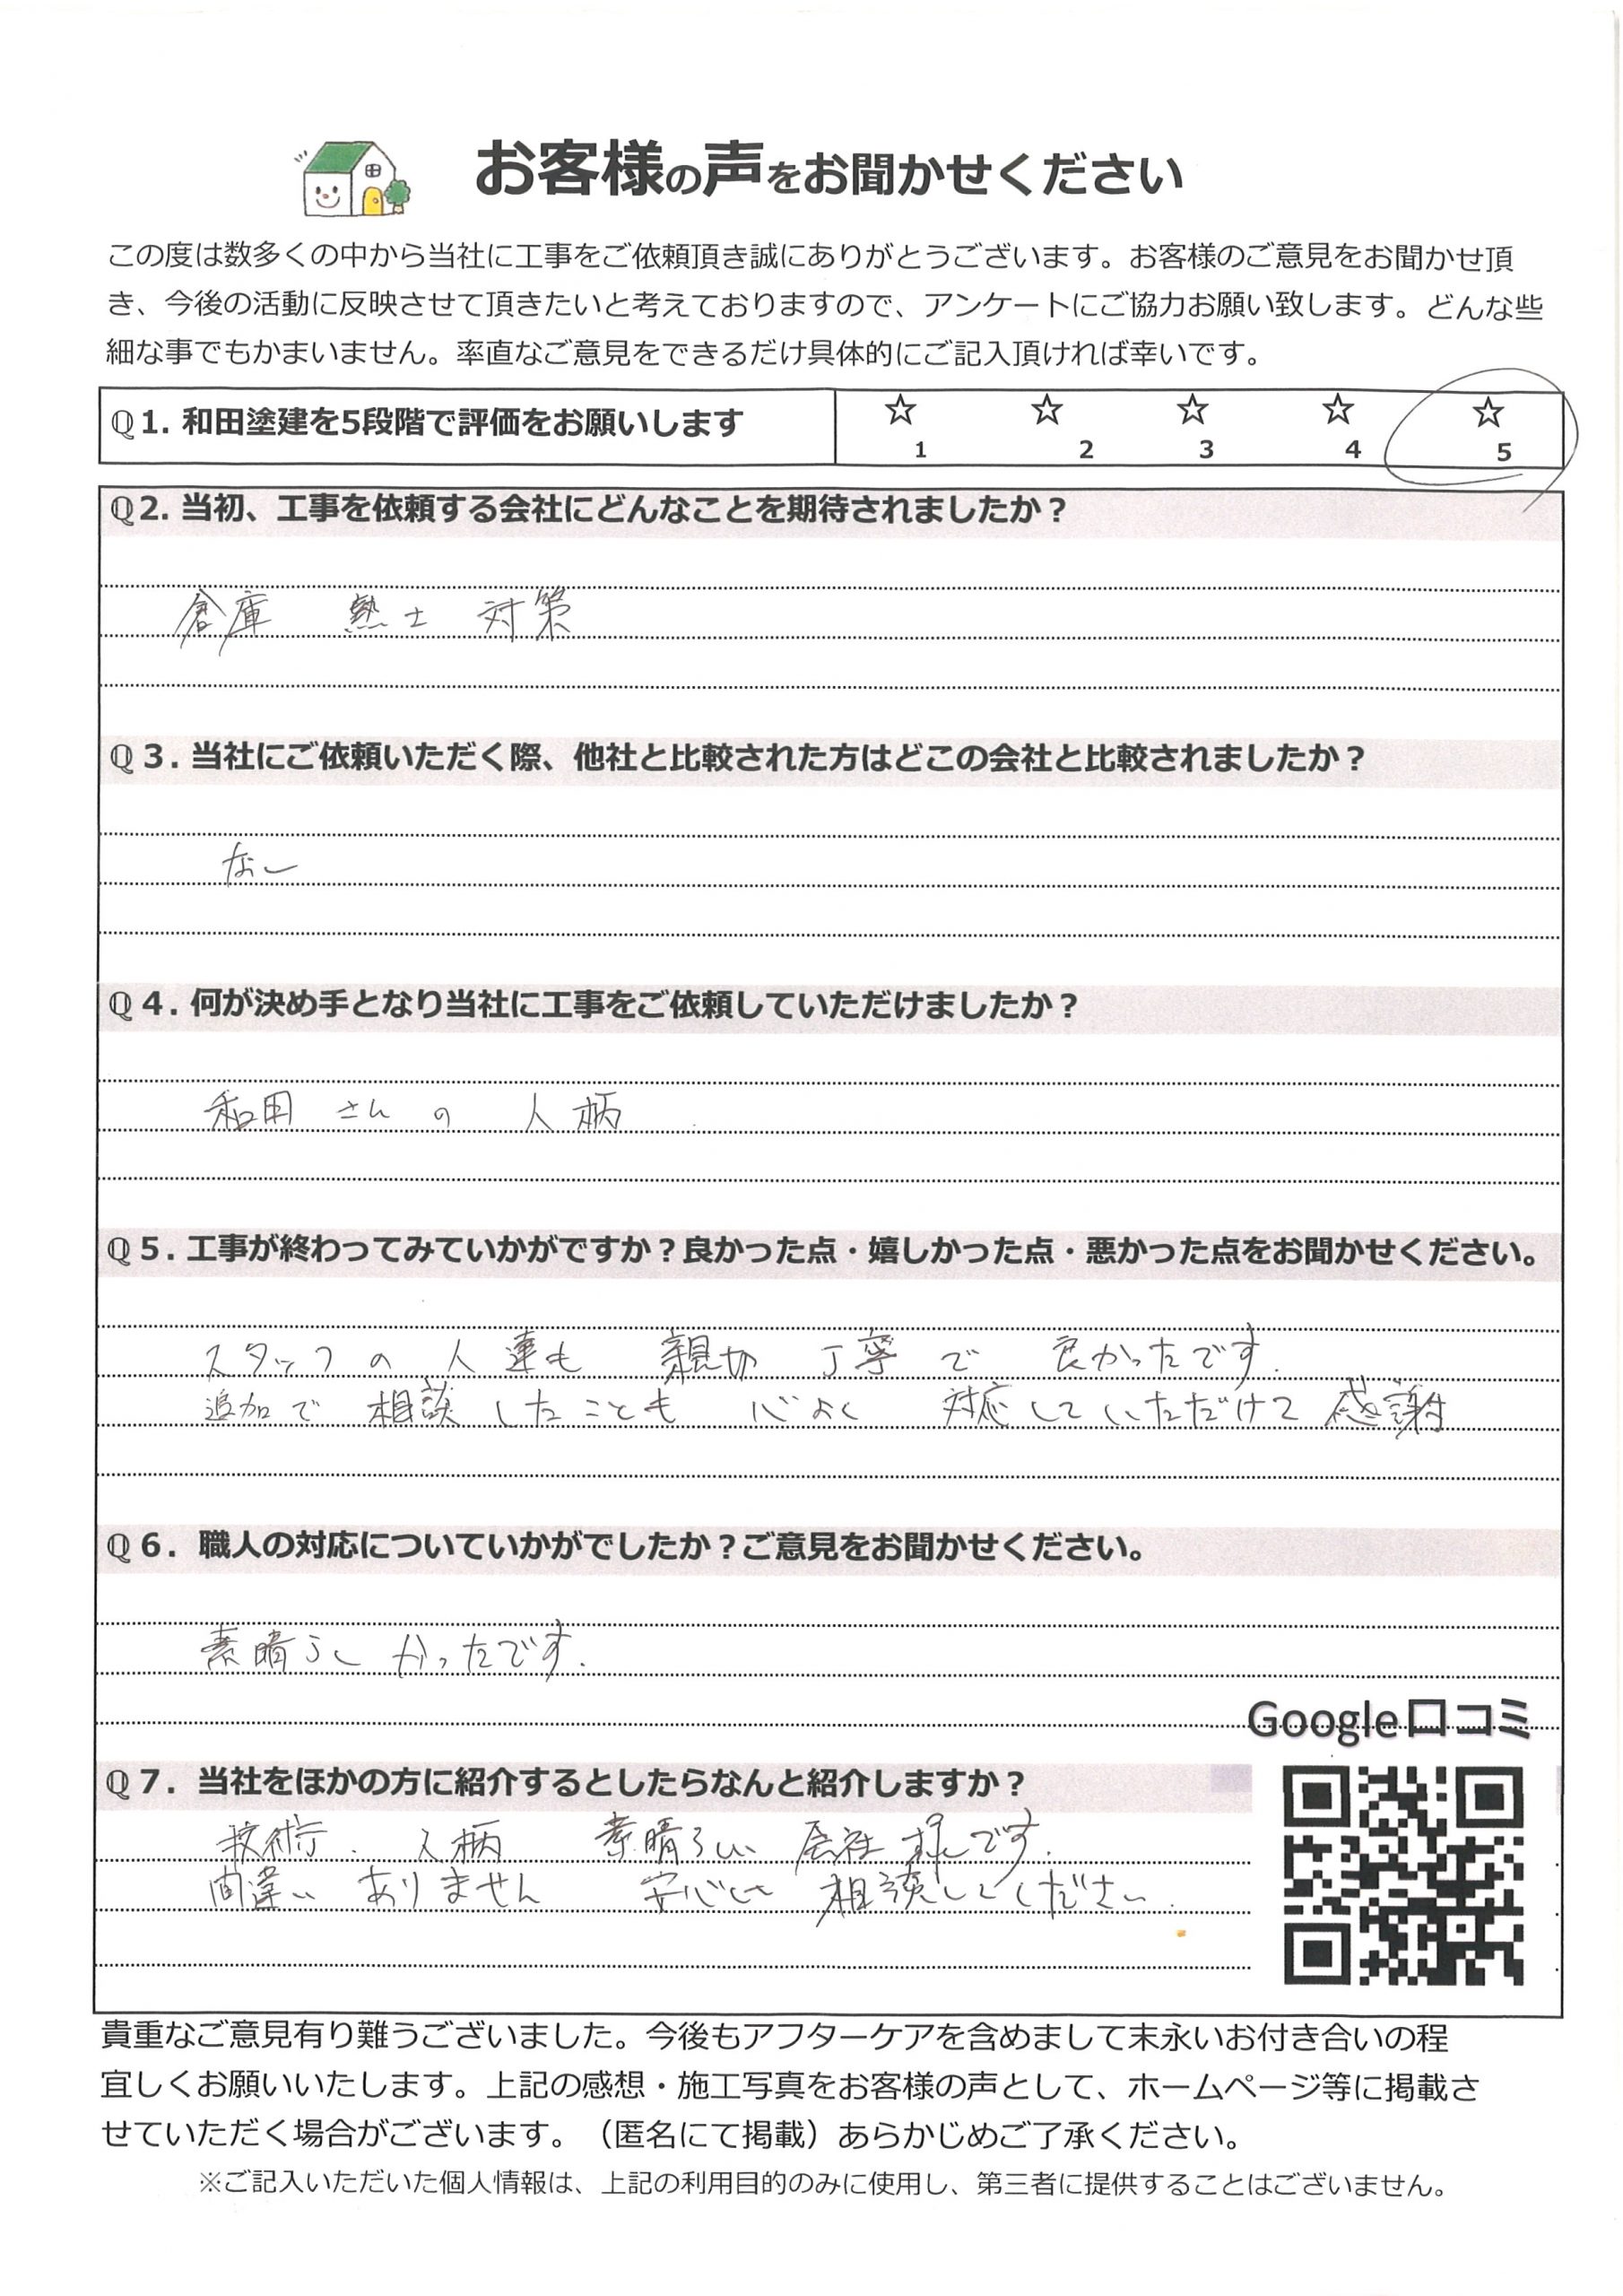 お客様の声をお聞かせください
この度は数多くの中から当社に工事をご依頼頂き誠にありがとうございます。お客様のご意見をお聞かせ頂
き、今後の活動に反映させて頂きたいと考えておりますので、アンケートにご協力お願い致します。どんな些
細な事でもかまいません。率直なご意見をできるだけ具体的にご記入頂ければ幸いです。
Q1. 和田塗建を5段階で評価をお願いします
☆ ☆ ☆ ☆ ☆
1 2 3 4 5
Q2. 当初、工事を依頼する会社にどんなことを期待されましたか?
倉庫 熱 対策
Q3. 当社にご依頼いただく際、他社と比較された方はどこの会社と比較されましたか?
なし
Q4. 何が決め手となり当社に工事をご依頼していただけましたか?
和田さんの 人柄
Q5. 工事が終わってみていかがですか?良かった点・嬉しかった点・悪かった点をお聞かせください。
スタッフの 人達も 親切 丁寧で 良かったです.
追加で 相談したことも 心よく 対応していただけて 感謝
Q6. 職人の対応についていかがでしたか?ご意見をお聞かせください。
素晴らしかったです.
Google口コミ
Q7. 当社をほかの方に紹介するとしたらなんと紹介しますか?
技術. 人柄 素晴らしい 会社様です.
間違いありません 安心して 相談してください.
貴重なご意見有り難うございました。今後もアフターケアを含めまして末永いお付き合いの程
宜しくお願いいたします。上記の感想・施工写真をお客様の声として、ホームページ等に掲載さ
せていただく場合がございます。（匿名にて掲載）あらかじめご了承ください。
※ご記入いただいた個人情報は、上記の利用目的のみに使用し、第三者に提供することはございません。